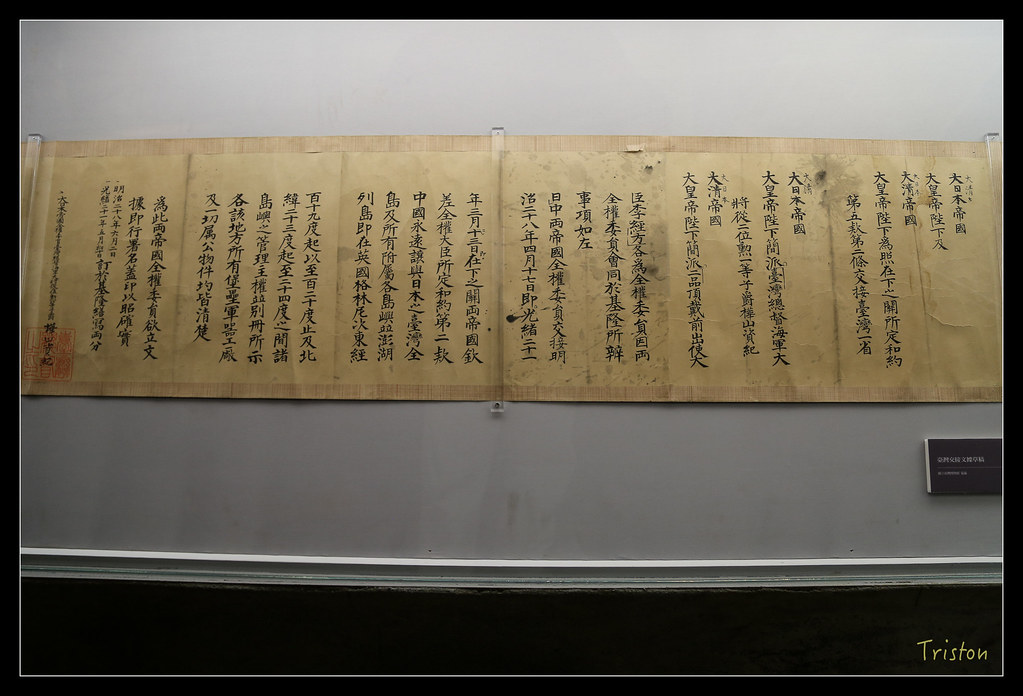 大日本帝國
大皇帝陛下及
大清帝國
大皇帝陛下為照在下之關所定和約
第五款第二條交接臺灣一省
大日本帝國
大皇帝陛下簡派臺灣總督海軍大
將從二位勲一等子爵樺山資紀
大清帝國
大皇帝陛下簡派二品頂戴前出使大
臣李經方各為全權委員因両
全權委員會同於基隆所辨
事項如左
日中両帝國全權委員交接明
治二十八年四月十七日即光緒二十一
年三月二十三日在下之關両帝國欽
差全權大臣所定和約第二款
中國永遠讓與日本之臺灣全
島及所有附屬各島嶼並澎湖
列島即在英國格林尼次東經
百十九度起以至百二十度止及北
緯二十三度起至二十四度之間諸
島嶼之管理主權並別冊所示
各該地方所有堡壘軍器工廠
及一切属公物件均皆清楚
為此両帝國全權委員欲立文
據即行署名蓋印以昭確實
明治二十八年六月二日
光緒二十一年五月初十日訂於基隆繕寫両分
樺山資紀
臺灣交接文據草稿
Triston